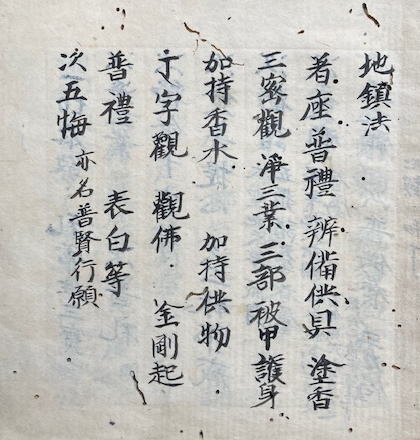 地鎮法
著座 普禮 辨備供具 塗香
三密觀 淨三業 三部 被甲護身
加持香水 加持供物
字觀 觀佛 金剛起
普禮 表白等
次五悔 亦名普賢行願